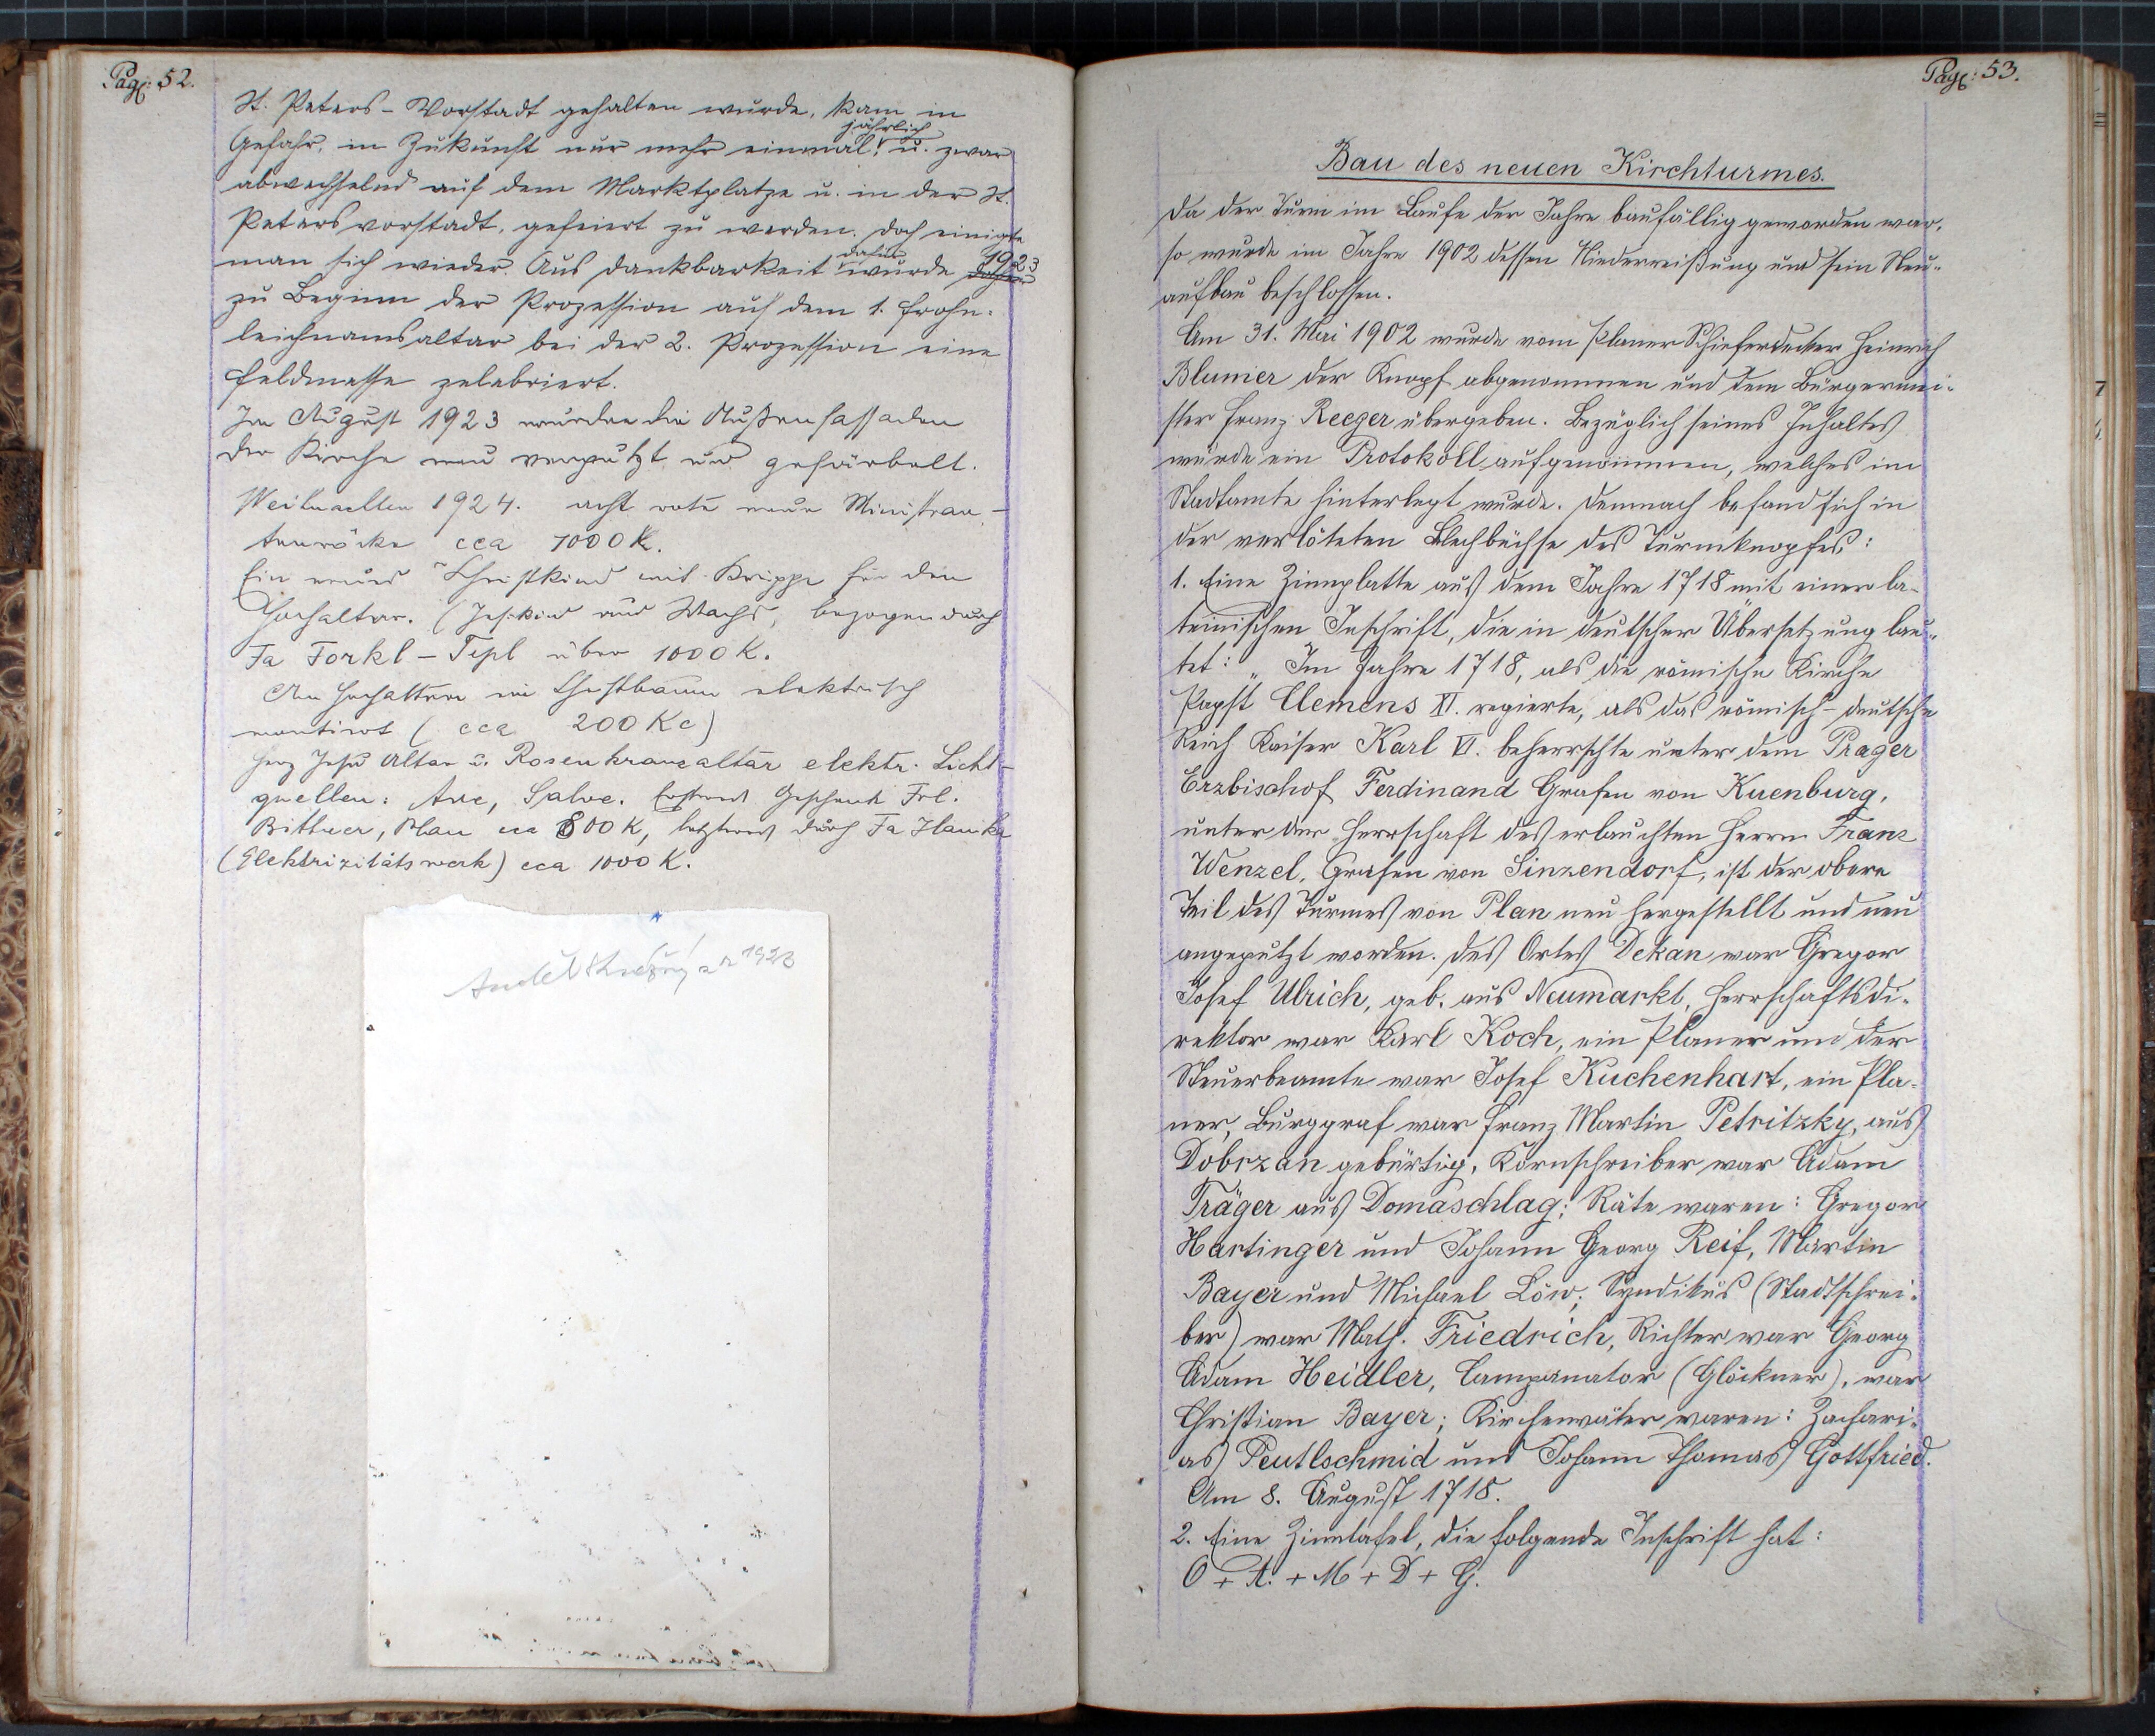 Pag: 52.
St. Peters-Vorstadt gehalten wurde, kam in
jährlich
Gefahr, in Zukunft nur mehr einmal, u. zwar
abwechselnd auf dem Marktplatze u. in der St.
Petersvorstadt, gefeiert zu werden. Doch einigte
dafür 1923
man sich wieder. Aus Dankbarkeit wurde
zu Beginn der Prozession auf dem 1. Frohn-
leichnamsaltar bei der 2. Prozession eine
Feldmesse zelebriert.
Im August 1923 wurden die Außenfassaden
der Kirche neu verputzt und gefärbelt.
Weihnachten 1924. acht rote neue Ministran-
tenröcke cca 1000 K.
Ein neues Christkind mit Krippe für den
Hochaltar. (Jesukind aus Wachs, bezogen durch
Fa Forkl - Tepl über 1000 K.
Am Hochaltare ein Christbaum elektrisch
montiert (cca 200 Kc)
Herz Jesu Altar u. Rosenkranzaltar elektr. Licht-
quellen: Ave, Salve. Ersteres Geschenk Frl.
Bittner, Plan cca 800 K, letzteres durch Fa Hanika
(Elektrizitätswerk) cca 1000 K.
1923
Pag: 53.
Bau des neuen Kirchturmes.
Da der Turm im Laufe der Jahre baufällig geworden war,
so wurde im Jahre 1902 dessen Niederreißung und sein Neu-
aufbau beschlossen.
Am 31. Mai 1902 wurde vom Planer Schieferdecker Heinrich
Blumer der Knopf abgenommen und dem Bürgermei-
ster Franz Reeger übergeben. Bezüglich seines Inhaltes
wurde ein Protokoll aufgenommen, welches im
Stadtamte hinterlegt wurde. Demnach befand sich in
der verlöteten Blechbüchse des Turmknopfes:
1. Eine Zinnplatte aus dem Jahre 1718 mit einer la-
teinischen Inschrift, die in deutscher Übersetzung lau-
tet: „Im Jahre 1718, als die römische Kirche
Papst Clemens XI. regierte, als das römisch-deutsche
Reich Kaiser Karl VI. beherrschte unter dem Prager
Erzbischof Ferdinand Grafen von Kuenburg,
unter der Herrschaft des erlauchten Herrn Franz
Wenzel, Grafen von Sinzendorf, ist der obere
Teil des Turmes von Plan neu hergestellt und neu
angeputzt worden. Des Ortes Dekan war Gregor
Josef Ulrich, geb. aus Neumarkt, Herrschaftsdi-
rektor war Karl Koch, ein Planer und der
Steuerbeamte war Josef Kuchenhart, ein Pla-
ner, Burggraf war Franz Martin Petritzky, aus
Dobrzan gebürtig, Kornschreiber war Adam
Träger aus Domaschlag; Räte waren: Gregor
Hartinger und Johann Georg Reif, Martin
Bayer und Michael Löw; Syndikus (Stadtschrei-
ber) war Math. Friedrich, Richter war Georg
Adam Heidler, Campanator (Glöckner), war
Christian Bayer; Kirchenväter waren: Zachari-
as Peutlschmid und Johann Thomas Gottfried.
Am 8. August 1718.
2. Eine Zinntafel, die folgende Inschrift hat:
O + A. + M + D + G.